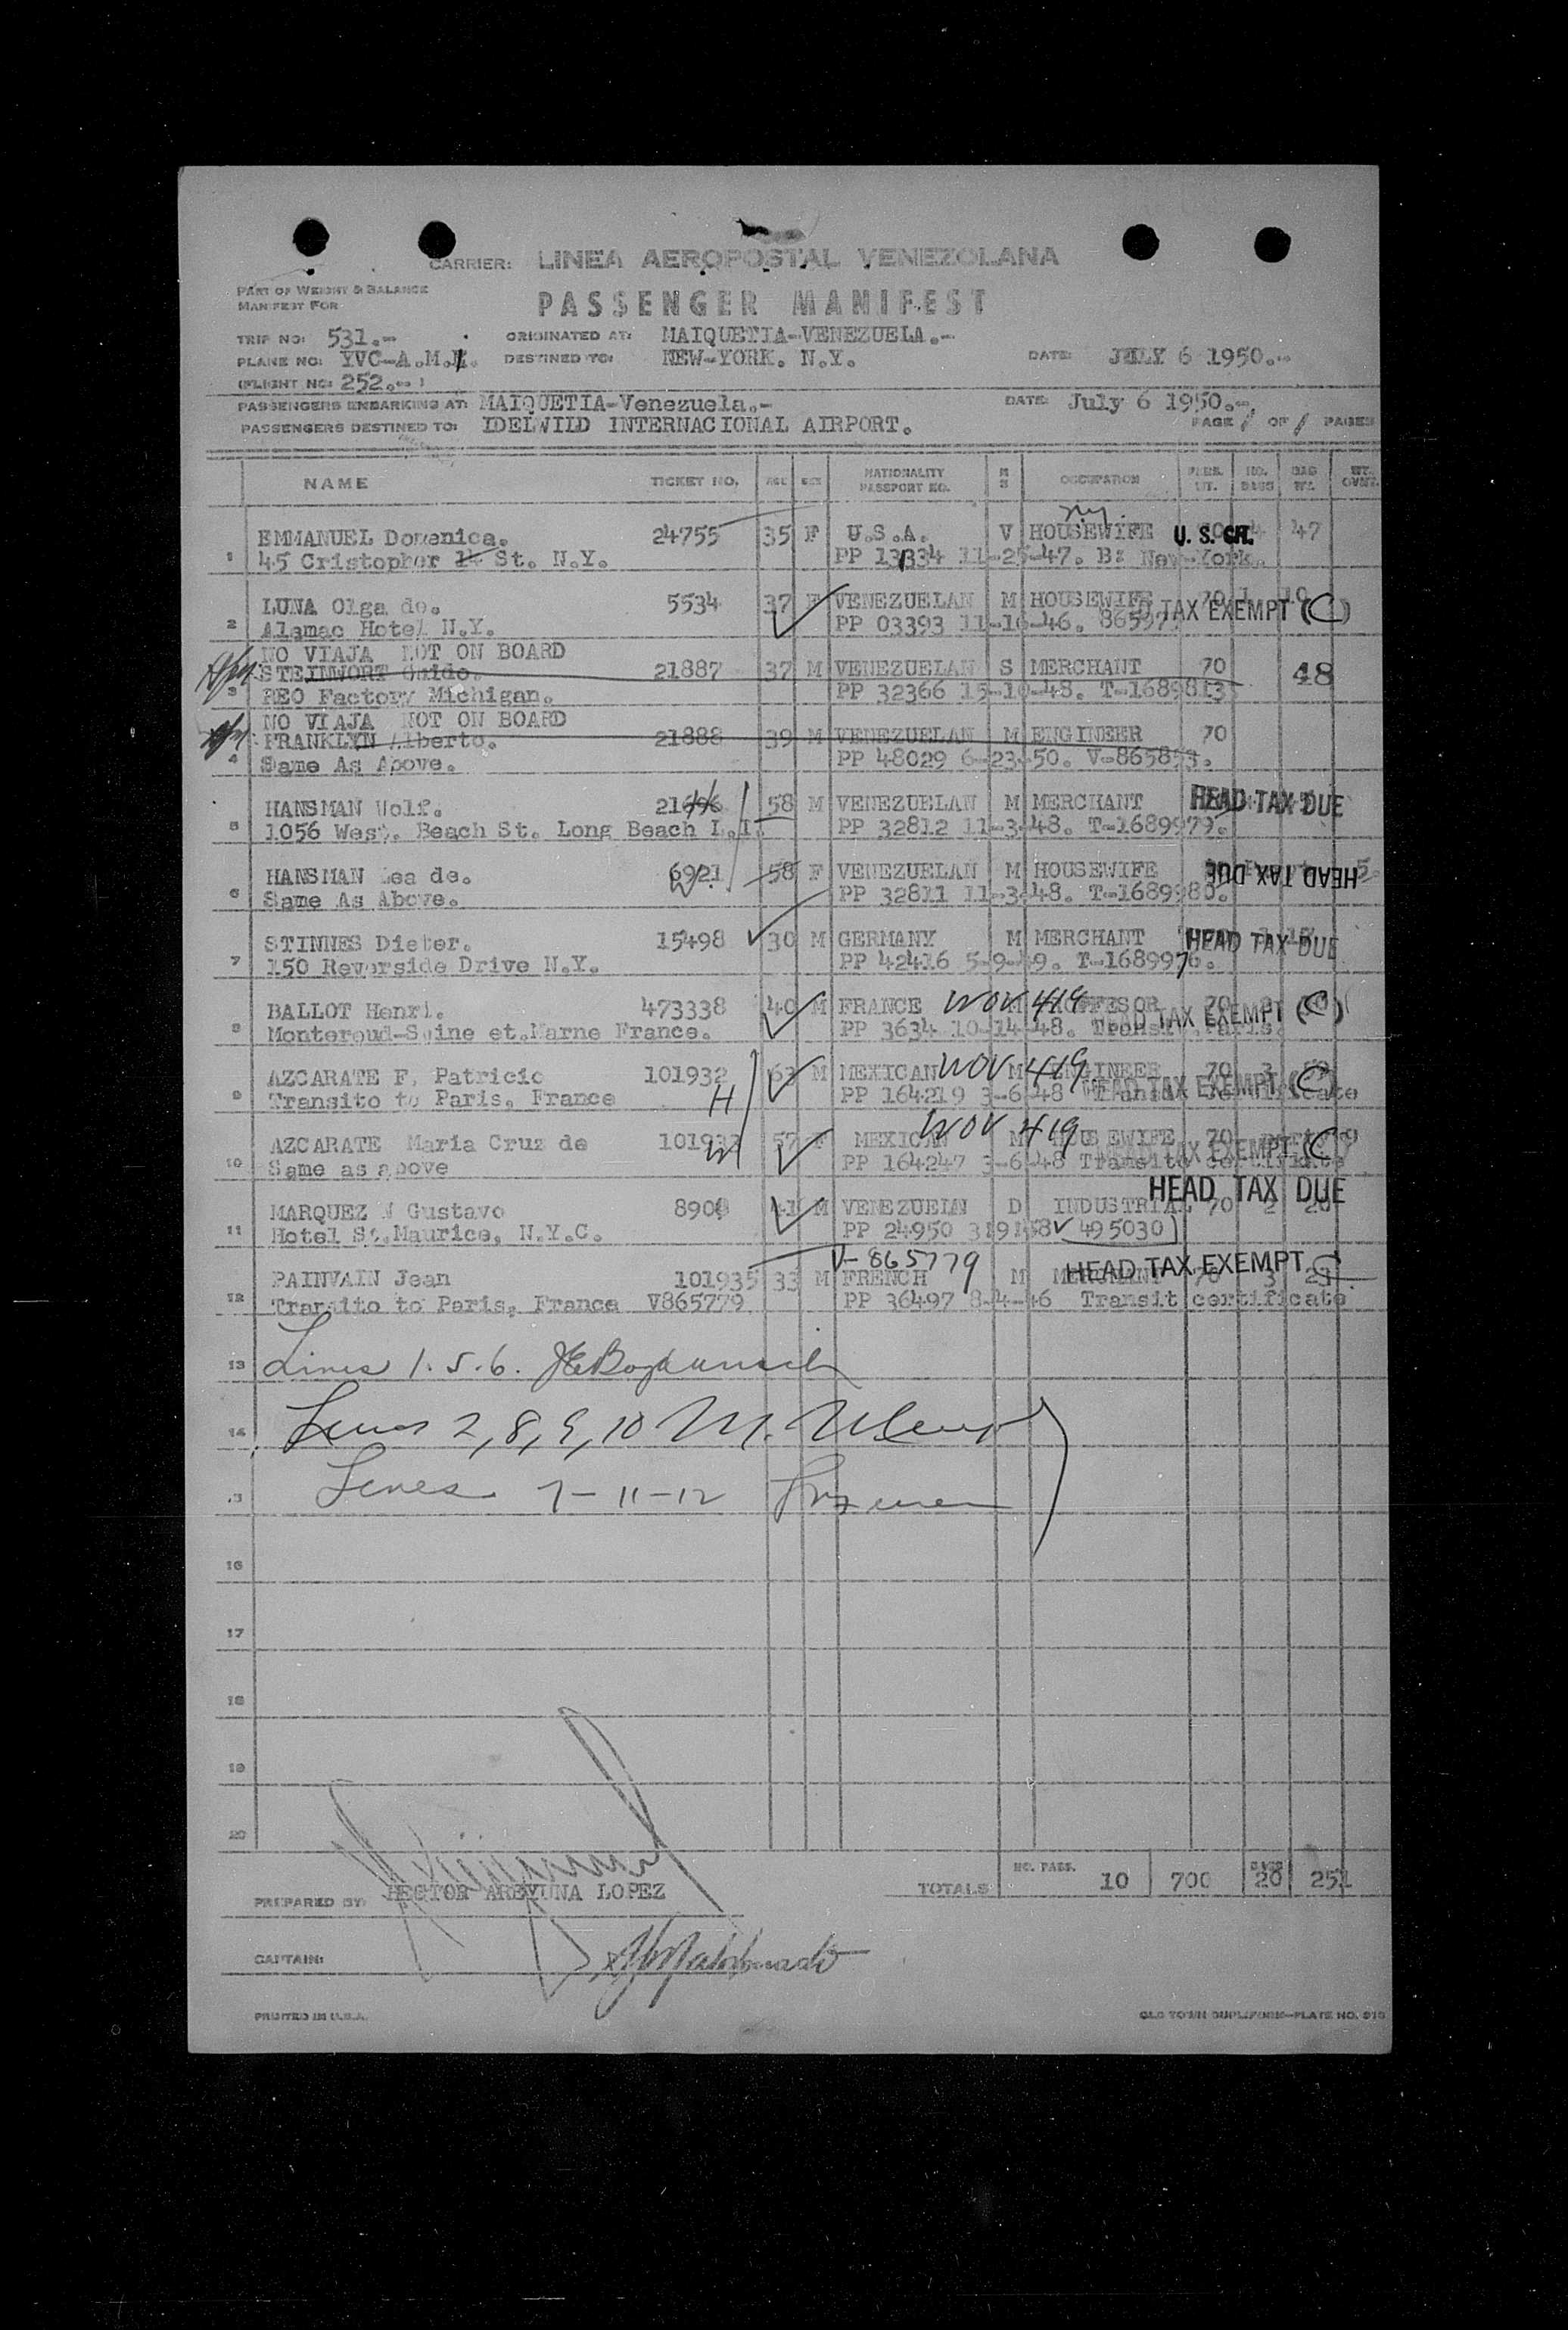 CARRIER: LINEA AEROPOSTAL VENEZOLANA
PART OF WEIGHT & BALANCE
MANIFEST FOR
PASSENGER MANIFEST
TRIP NO: 531.- ORIGINATED AT: MAIQUETIA-VENEZUELA.-
PLANE NO: YVC-A.M. DESTINED TO: NEW-YORK. N.Y. DATE: JULY 6 1950.-
(FLIGHT NO: 252.- )
PASSENGERS EMBARKING AT: MAIQUETIA-Venezuela.- DATE: July 6 1950.-
PASSENGERS DESTINED TO: IDELWILD INTERNACIONAL AIRPORT. PAGE 1 OF 1 PAGES
NAME TICKET NO. AGE SEX NATIONALITY PASSPORT NO. M S OCCUPATION PERS. WT. NO. BAGS BAG WT. WT. OVWT.
EMMANUEL Domenica. 24755 35 F U.S.A. V HOUSEWIFE U.S. CIT. 47
1 45 Cristopher St. N.Y. PP 13334 11-25-47. B: New-York.
LUNA Olga de. 5534 37 F VENEZUELAN M HOUSEWIFE 70 1 19
2 Alamac Hotel N.Y. PP 03393 11-10-46. TAX EXEMPT (C)
NO VIAJA NOT ON BOARD
STEINWORT Guido. 21887 37 M VENEZUELAN S MERCHANT 70 48
3 REO Factory Michigan. PP 32366 15-10-48. T-1689813
NO VIAJA NOT ON BOARD
FRANKLYN Alberto. 21888 39 M VENEZUELAN M ENGINEER 70
4 Same As Above. PP 48029 6-23-50. V-865853.
HANSMAN Wolf. 58 M VENEZUELAN M MERCHANT HEAD TAX DUE
5 1056 West. Beach St. Long Beach L.I. PP 32812 11-3-48. T-1689979.
HANSMAN Lea de. 6921 58 F VENEZUELAN M HOUSEWIFE HEAD TAX DUE
6 Same As Above. PP 32811 11-3-48. T-1689980.
STINNES Dieter. 15498 30 M GERMANY M MERCHANT HEAD TAX DUE
7 150 Reverside Drive N.Y. PP 42416 5-9-49. T-1689976.
BALLOT Henri. 473338 40 M FRANCE WOV 419 PROFESOR 70
8 Montereud-Seine et.Marne France. PP 3634 10-14-48. Transit Paris. HEAD TAX EXEMPT (C)
AZCARATE F. Patricio 101932 63 M MEXICAN WOV 419 ENGINEER 70 3
9 Transito to Paris, France H PP 164219 3-6-48 HEAD TAX EXEMPT (C)
AZCARATE Maria Cruz de 57 F MEXICAN WOV 419 HOUSEWIFE 70
10 Same as above W PP 164247 3-6-48 Transito certificate HEAD TAX EXEMPT (C)
HEAD TAX DUE
MARQUEZ N Gustavo 8908 41 M VENEZUELAN D INDUSTRIAL 70 2 20
11 Hotel St.Maurice, N.Y.C. PP 24950 V 495030
V-865779
PAINVAIN Jean 101935 33 M FRENCH M MERCHANT 70 3 21 HEAD TAX EXEMPT C
12 Transito to Paris, France V865779 PP 36497 8-4-46 Transit certificate
13 Lines 1.5.6.
14 Lines 2,8,9,10 M.
Lines 7-11-12
16
17
18
19
20
PREPARED BY: HECTOR AREYUNA LOPEZ TOTALS NO. PASS. 10 700 BAGS 20 251
CAPTAIN:
PRINTED IN U.S.A. OLD TOWN DUPLIFORM-PLATE NO. 910